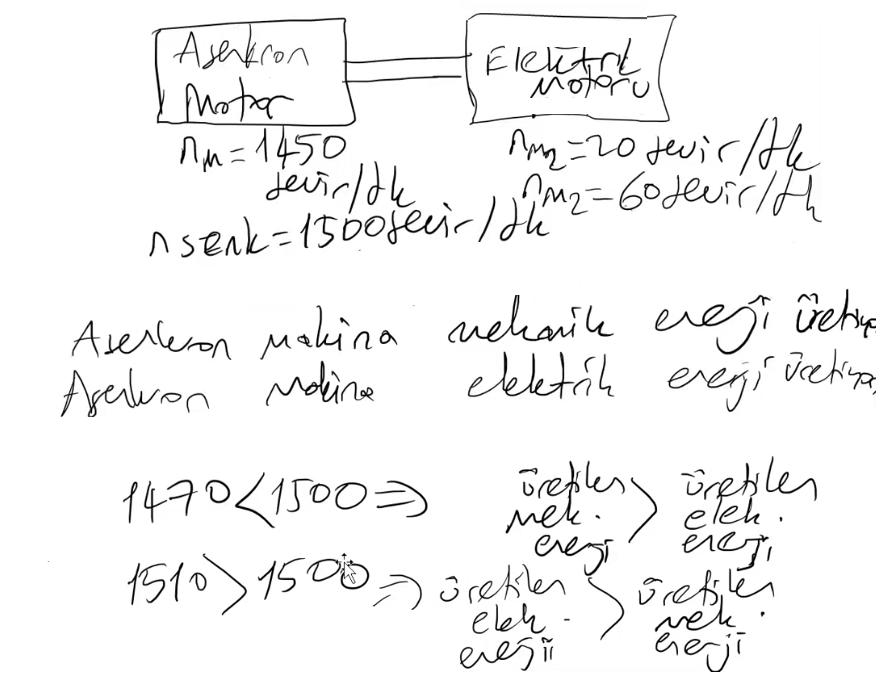 Asenkron
Motor
Elektrik
Motoru
nM = 1450
devir/dk
nM2 = 20 devir/dk
nM2 = 60 devir/dk
n senk = 1500 devir/dk
Asenkron makina mekanik enerji üretiyor
Asenkron makina elektrik enerji üretiyor
1470 < 1500 ⇒ üretilen mek. enerji > üretilen elek. enerji
1510 > 1500 ⇒ üretilen elek. enerjii > üretilen mek. enerji